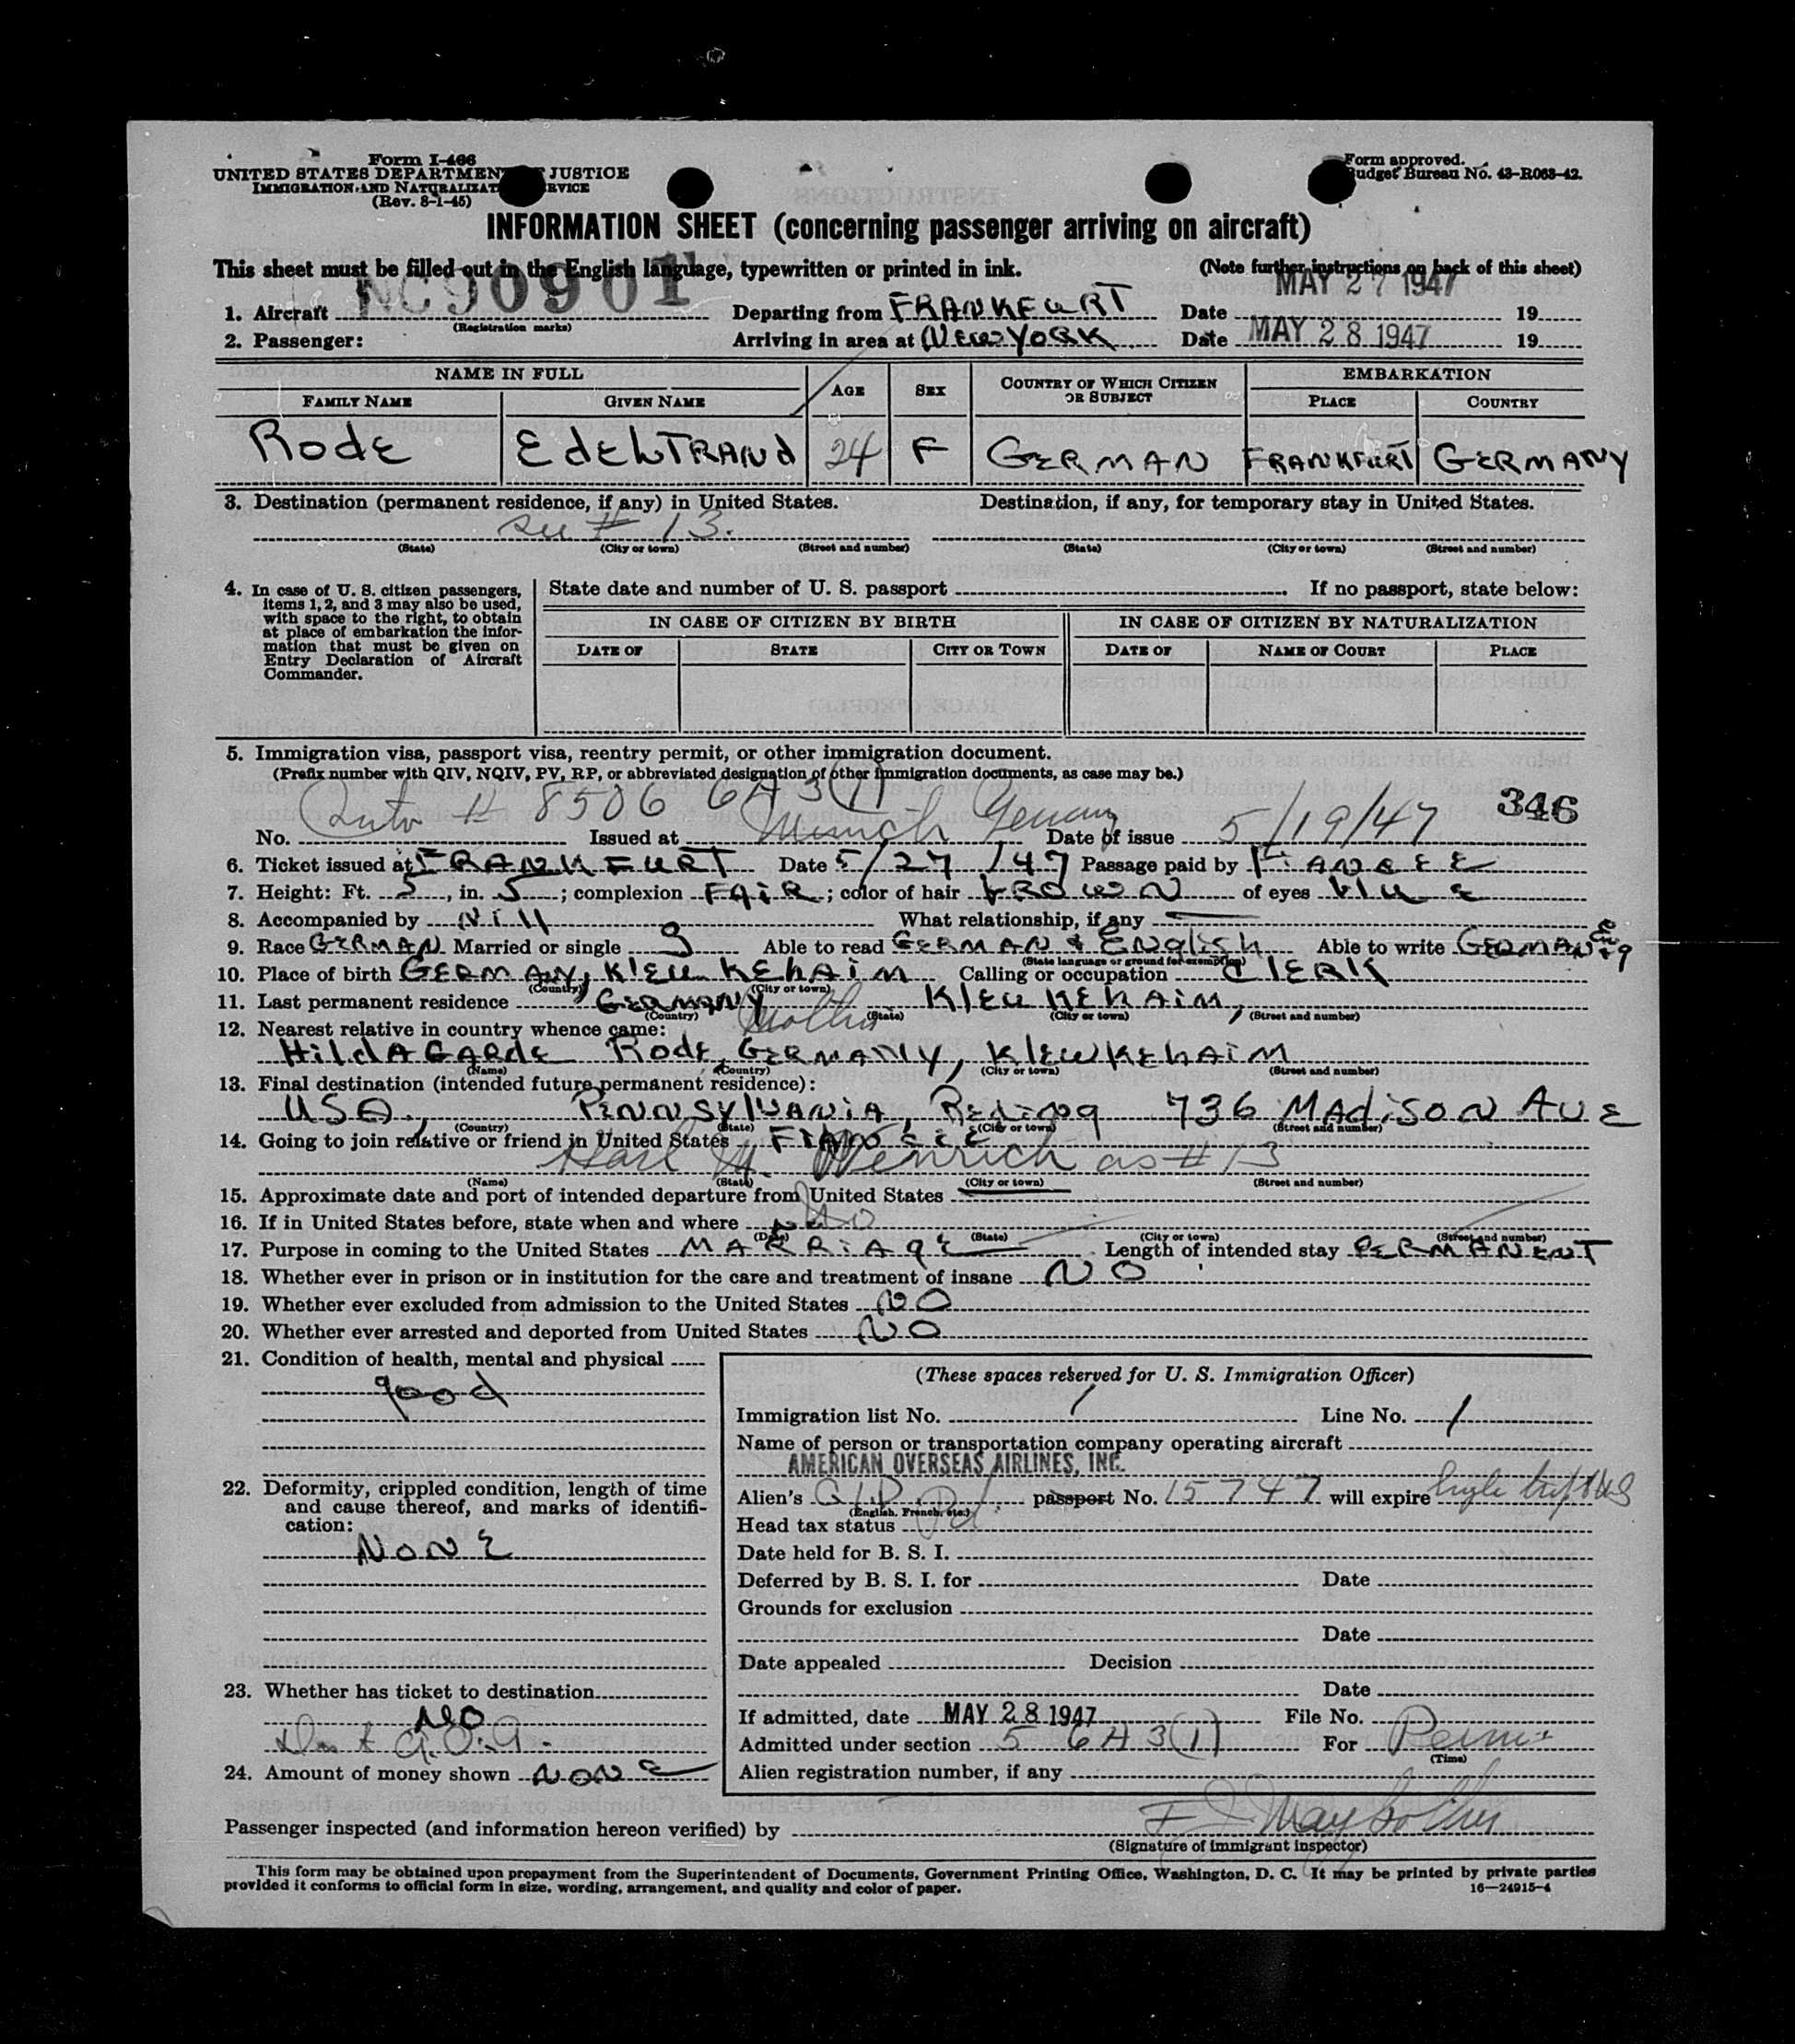 Form I-466
UNITED STATES DEPARTMENT JUSTICE
IMMIGRATION AND NATURALIZAT RVICE
(Rev. 8-1-45)
Form approved.
udget Bureau No. 43-R063-42.
INFORMATION SHEET (concerning passenger arriving on aircraft)
This sheet must be filled out in the English language, typewritten or printed in ink. (Note further instructions on back of this sheet)
1. Aircraft NC90901 Departing from FRANKFURT Date MAY 27 1947 19
(Registration marks)
2. Passenger: Arriving in area at NEW YORK Date MAY 28 1947 19
NAME IN FULL AGE SEX COUNTRY OF WHICH CITIZEN OR SUBJECT EMBARKATION
FAMILY NAME GIVEN NAME PLACE COUNTRY
RODE EDELTRAND 24 F GERMAN FRANKFURT GERMANY
3. Destination (permanent residence, if any) in United States. Destination, if any, for temporary stay in United States.
see # 13.
(State) (City or town) (Street and number) (State) (City or town) (Street and number)
4. In case of U. S. citizen passengers, items 1, 2, and 3 may also be used, with space to the right, to obtain at place of embarkation the information that must be given on Entry Declaration of Aircraft Commander.
State date and number of U. S. passport If no passport, state below:
IN CASE OF CITIZEN BY BIRTH IN CASE OF CITIZEN BY NATURALIZATION
DATE OF STATE CITY OR TOWN DATE OF NAME OF COURT PLACE
5. Immigration visa, passport visa, reentry permit, or other immigration document.
(Prefix number with QIV, NQIV, PV, RP, or abbreviated designation of other immigration documents, as case may be.)
346
No. # 8506 6A 3(1) Issued at Munich Germany Date of issue 5/19/47
6. Ticket issued at FRANKFURT Date 5/27/47 Passage paid by FIANCEE
7. Height: Ft. 5, in. 5; complexion FAIR; color of hair BROWN of eyes BLUE
8. Accompanied by NILL What relationship, if any —
9. Race GERMAN Married or single S Able to read GERMAN & ENGLISH Able to write GERMAN & Eng
(State language or ground for exemption)
10. Place of birth GERMANY, KLEUKEHAIM Calling or occupation CLERK
(Country) (City or town)
11. Last permanent residence GERMANY KLEUKEHAIM,
(Country) (State) (City or town) (Street and number)
12. Nearest relative in country whence came: Mother
HILDAGARDE RODE, GERMANY, KLEWKEHAIM
(Name) (Country) (City or town) (Street and number)
13. Final destination (intended future permanent residence):
USA, PENNSYLVANIA, REDING 736 MADISON AVE
(Country) (State) (City or town) (Street and number)
14. Going to join relative or friend in United States FIANCEE
Karl M. Wenrich as # 13
(Name) (State) (City or town) (Street and number)
15. Approximate date and port of intended departure from United States —
16. If in United States before, state when and where No
(Date) (State) (City or town) (Street and number)
17. Purpose in coming to the United States MARRIAGE Length of intended stay PERMANENT
18. Whether ever in prison or in institution for the care and treatment of insane NO
19. Whether ever excluded from admission to the United States NO
20. Whether ever arrested and deported from United States NO
21. Condition of health, mental and physical
good
22. Deformity, crippled condition, length of time and cause thereof, and marks of identification:
NONE
23. Whether has ticket to destination
NO
24. Amount of money shown NONE
(These spaces reserved for U. S. Immigration Officer)
Immigration list No. 1 Line No. 1
Name of person or transportation company operating aircraft
AMERICAN OVERSEAS AIRLINES, INC.
Alien's passport No. 15747 will expire
(English, French, etc.)
Head tax status Pd.
Date held for B. S. I.
Deferred by B. S. I. for Date
Grounds for exclusion
Date
Date appealed Decision
Date
If admitted, date MAY 28 1947 File No.
Admitted under section 5 6A 3(1) For Perm.
(Time)
Alien registration number, if any
Passenger inspected (and information hereon verified) by
(Signature of immigrant inspector)
This form may be obtained upon prepayment from the Superintendent of Documents, Government Printing Office, Washington, D. C. It may be printed by private parties
provided it conforms to official form in size, wording, arrangement, and quality and color of paper. 16—24915-4